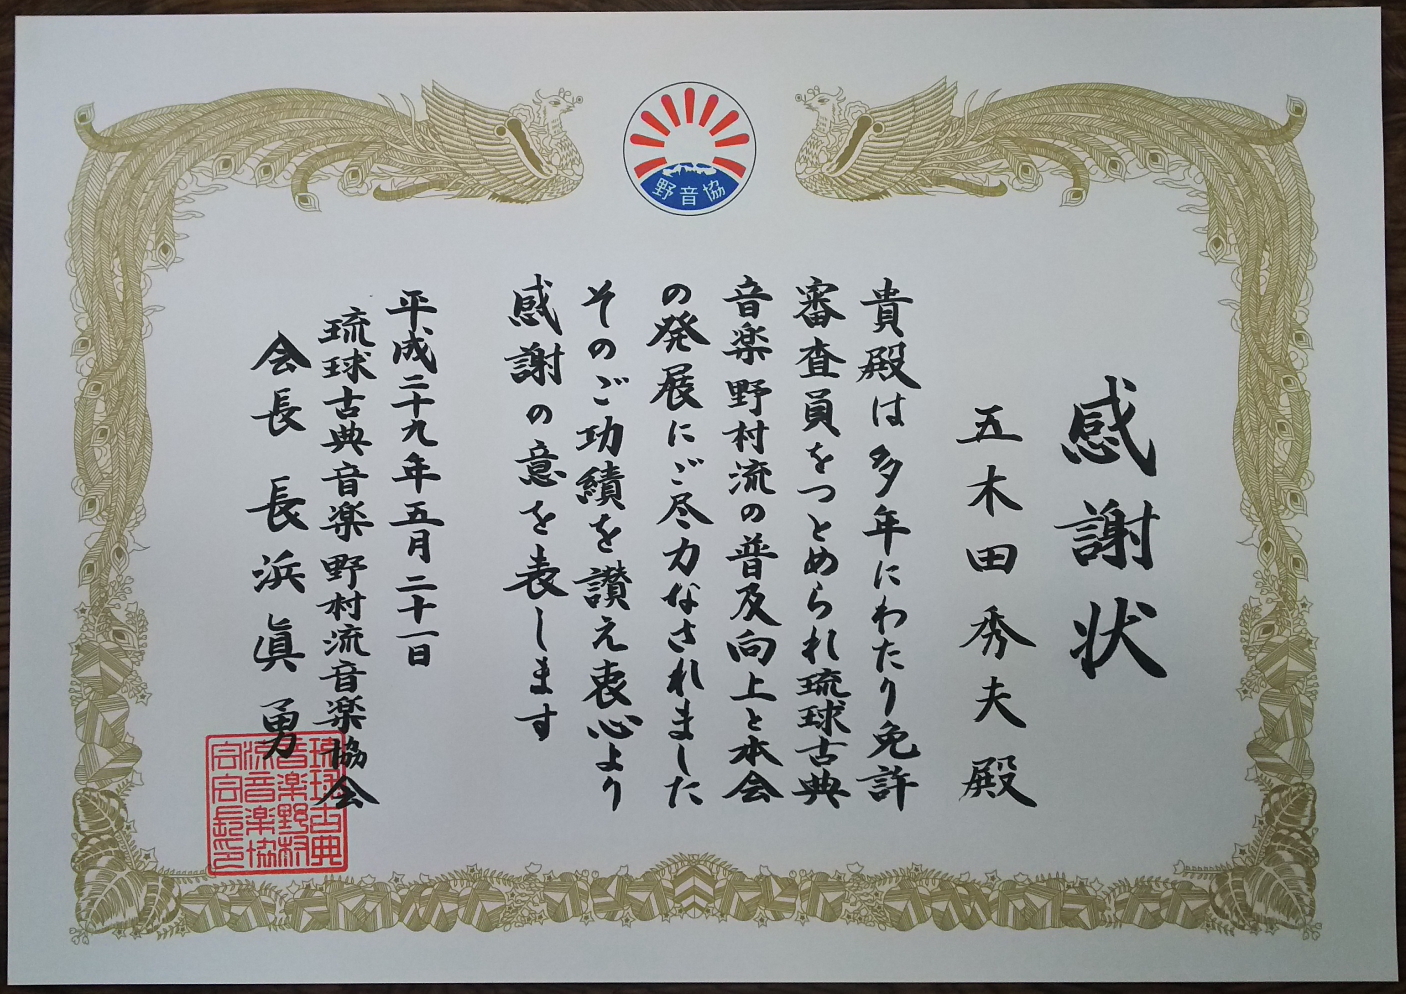 野音協
感謝状
五木田秀夫殿
貴殿は多年にわたり免許
審査員をつとめられ琉球古典
音楽野村流の普及向上と本会
の発展にご尽力なされました
そのご功績を讃え衷心より
感謝の意を表します
平成二十九年五月二十一日
琉球古典音楽野村流音楽協会
会長 長浜眞勇
琉球古典
音楽野村
流音楽協
会会長印